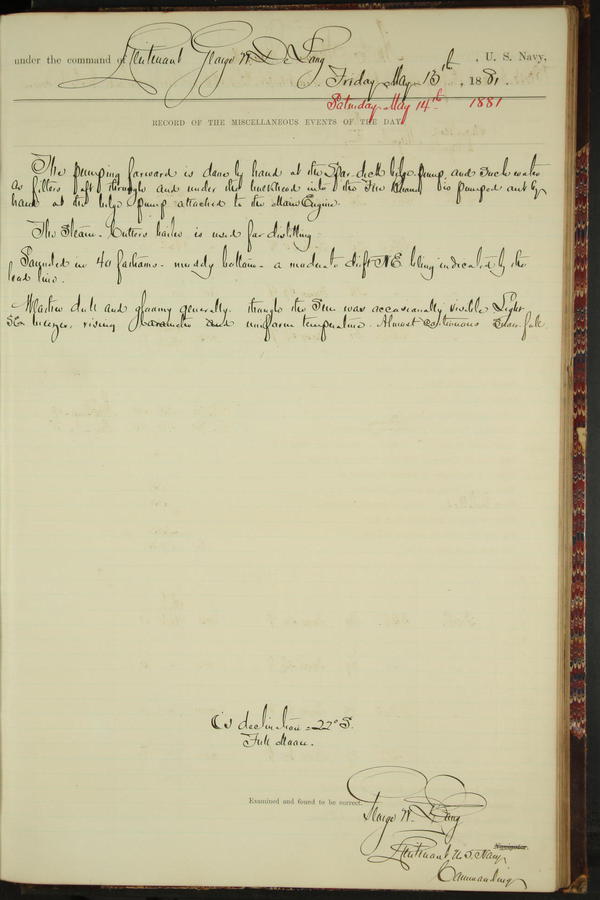 under the command of Lieutenant George W. De Long, U. S. Navy,
Friday May 13th, 1881.
Saturday May 14th 1881
RECORD OF THE MISCELLANEOUS EVENTS OF THE DAY.
The pumping forward is done by hand at the Spar deck bilge pump, and such water
as filters aft through and under the bulkhead into the Fire Room is pumped out by
hand at the bilge pump attached to the Main Engine.
The Steam-Cutters boiler is used for distilling.
Sounded in 40 fathoms - muddy bottom - a moderate drift NE. being indicated by the
lead line.
Weather dull and gloomy generally, though the Sun was occasionally visible. Light
SE breezes, rising barometer and uniform temperature. Almost continuous Snow-fall.
☾'s declination = 22° S.
Full Moon.
Examined and found to be correct.
George W. De Long
Lieutenant U.S. Navy
Navigator.
Commanding